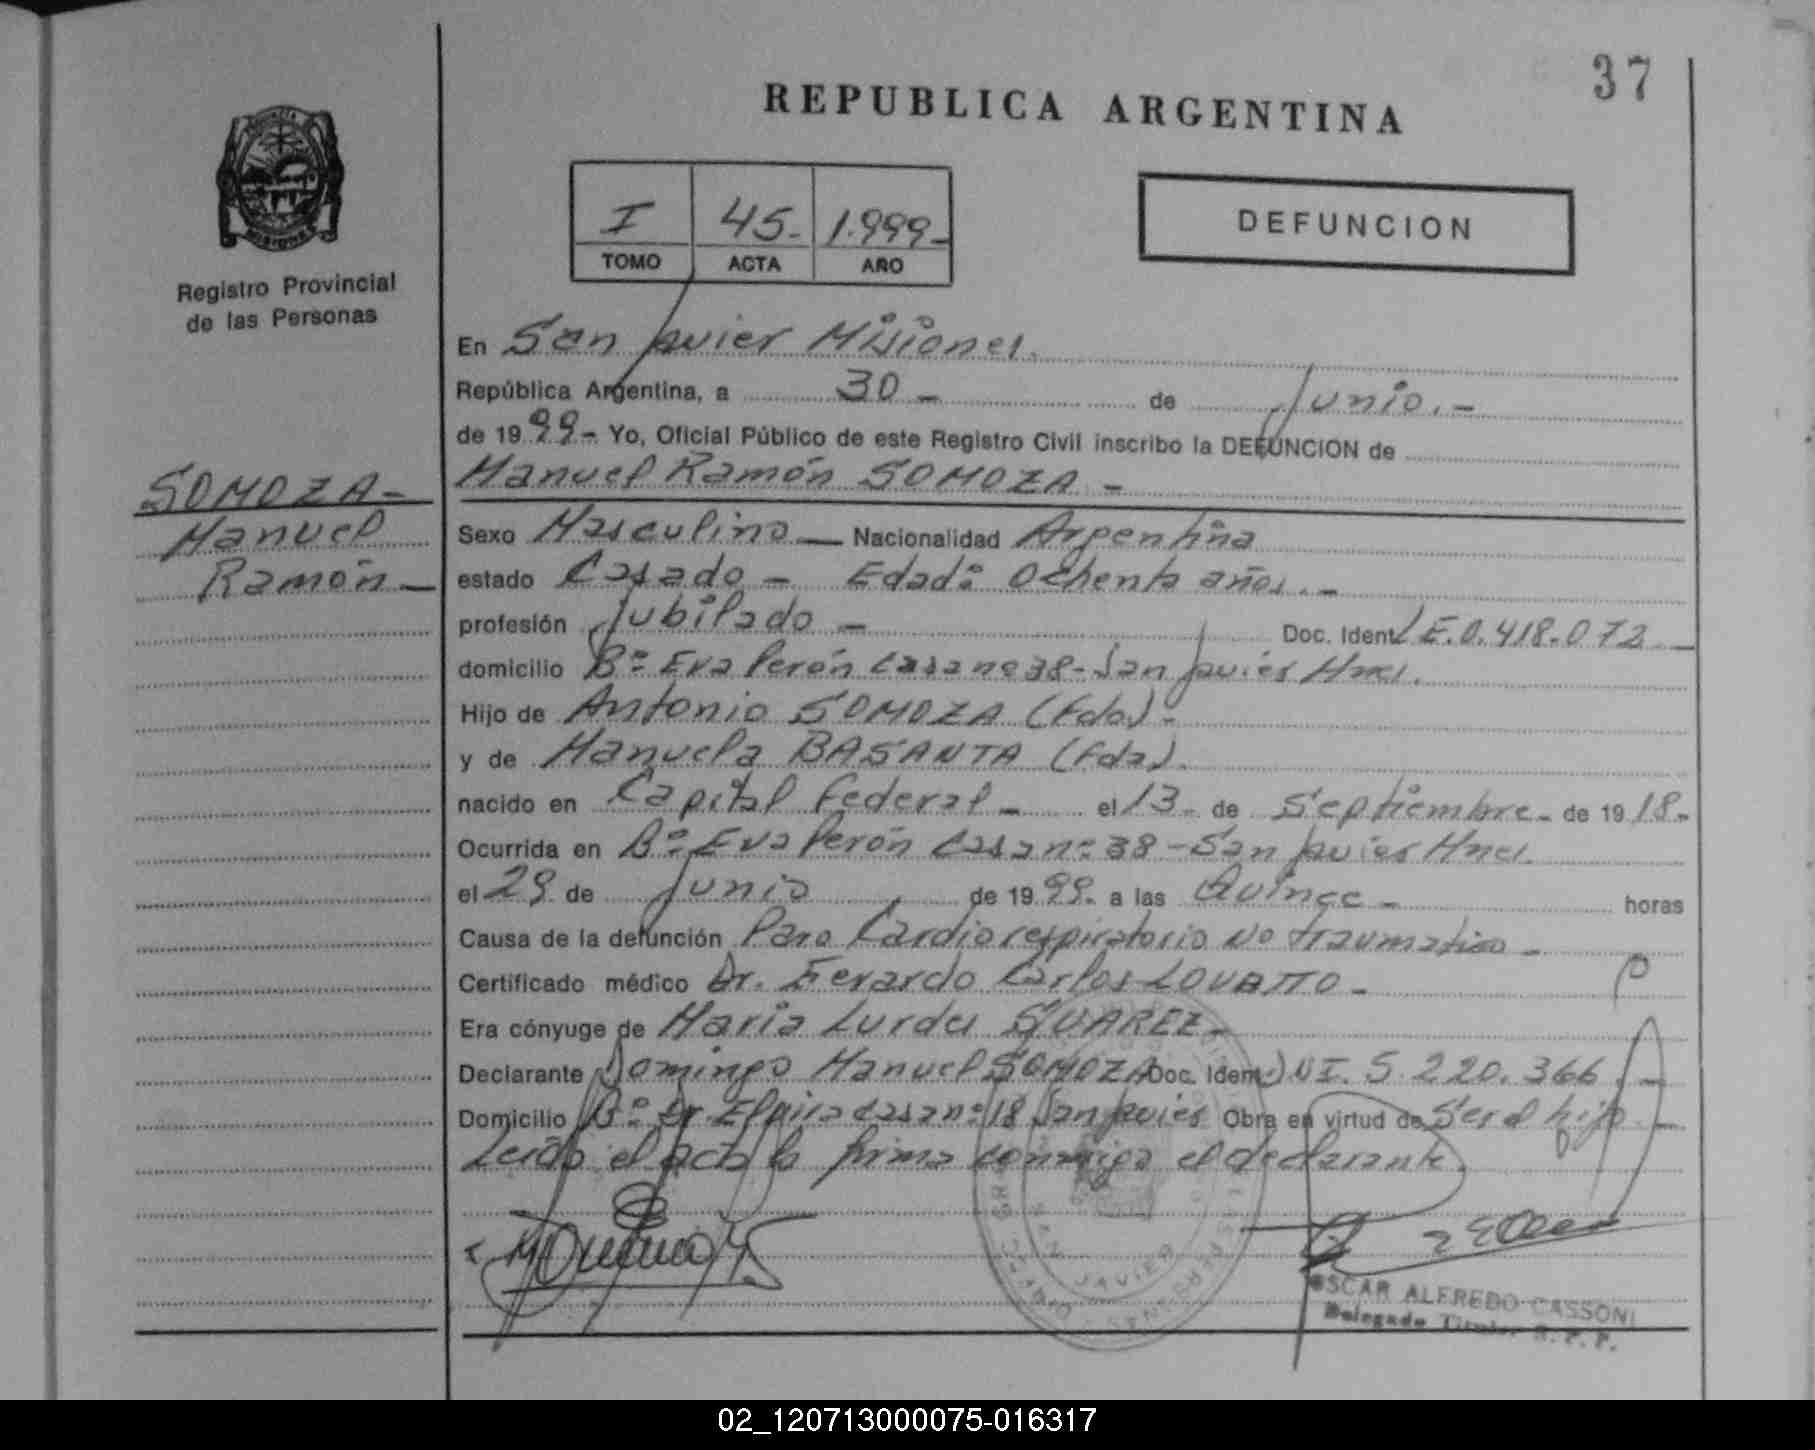 37
REPUBLICA ARGENTINA
I 45- 1.999-
TOMO ACTA AÑO
DEFUNCION
MISIONES
Registro Provincial
de las Personas
SOMOZA-
Manuel
Ramón-
En San Javier Misiones.
República Argentina, a 30- de Junio.-
de 1999- Yo, Oficial Público de este Registro Civil inscribo la DEFUNCION de
Manuel Ramón SOMOZA-
Sexo Masculino- Nacionalidad Argentina
estado Casado- Edad: Ochenta años.-
profesión Jubilado- Doc. Ident. L.E.0.418.072-
domicilio Bº Eva Perón casa nº 38-San Javier Mnes.
Hijo de Antonio SOMOZA (Fdo)-
y de Manuela BASANTA (Fda).
nacido en Capital Federal- el 13- de Septiembre- de 1918-
Ocurrida en Bº Eva Perón casa nº 38-San Javier Mnes.
el 29 de Junio de 1999- a las Quince- horas
Causa de la defunción Paro Cardiorespiratorio No traumatico-
Certificado médico Dr. Gerardo Carlos LOVATTO-
Era cónyuge de Maria Lurdes SUAREZ-
Declarante Domingo Manuel SOMOZA Doc. Ident. DNI. 5.220.366.-
Domicilio Bº Dr. casa nº 18 San Javier Obra en virtud de Ser el hijo.-
Leida el acta la firma conmigo el declarante.
SAN JAVIER
OSCAR ALFREDO CASSONI
Delegado Titular R. P. P.
02_120713000075-016317